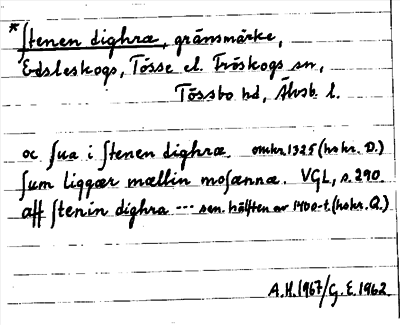 *ſtenen dighræ, gränsmärke,
Edsleskogs, Tösse el. Fröskogs sn,
Tössbo hd, Älvsb. l.
oc ſua i ſtenen dighræ. omkr. 1325 (hskr. D.)
ſum liggær mællin moſænnæ. VGL, s. 290
aff ſtenin dighra --- sen. hälften av 1400-t. (hskr. Q.)
A.H. 1967/G.E. 1962